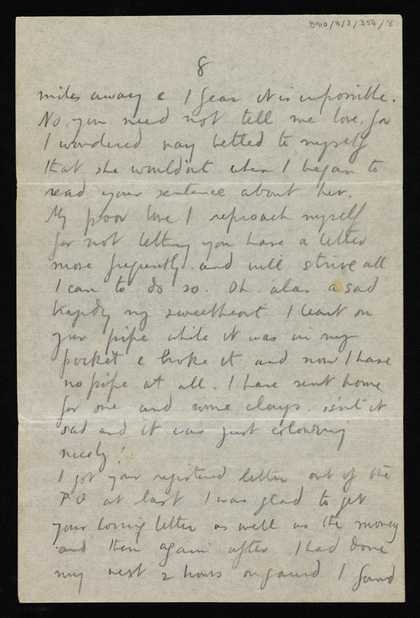 8
miles away & I fear it is impossible.
No you need not tell me love, for
I wondered nay betted to myself
that she wouldn't when I began to
read your sentence about her.
My poor love I reproach myself
for not letting you have a letter
more frequently. and will strive all
I can to do so. Oh alas a sad
tragedy my sweetheart I leant on
your pipe while it was in my
pocket & broke it and now I have
no pipe at all. I have sent home
for one and some clays. isn't it
sad and it was just colouring
nicely!
I got your registered letter out of the
P.O at last I was glad to get
your loving letter as well as the money
and then again after I had done
my next 2 hours on guard I found